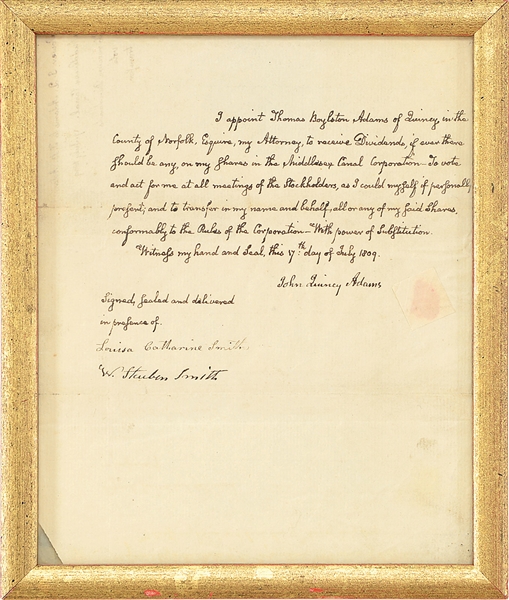 I appoint Thomas Boylston Adams of Quincy, in the
County of Norfolk, Esquire, my Attorney, to receive Dividends, if ever there
should be any, on my shares in the Middlesex Canal Corporation—To vote
and act for me at all meetings of the Stockholders, as I could myself if personally
present; and to transfer in my name and behalf, all or any of my said Shares,
conformably to the Rules of the Corporation—With power of Substitution.
Witness my hand and Seal, this 17th day of July 1809.
John Quincy Adams
Signed, sealed and delivered
in presence of.
Louisa Catharine Smith
W. Steuben Smith